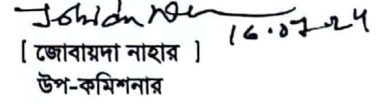 16.07.24
[ জোবায়দা নাহার ]
উপ-কমিশনার